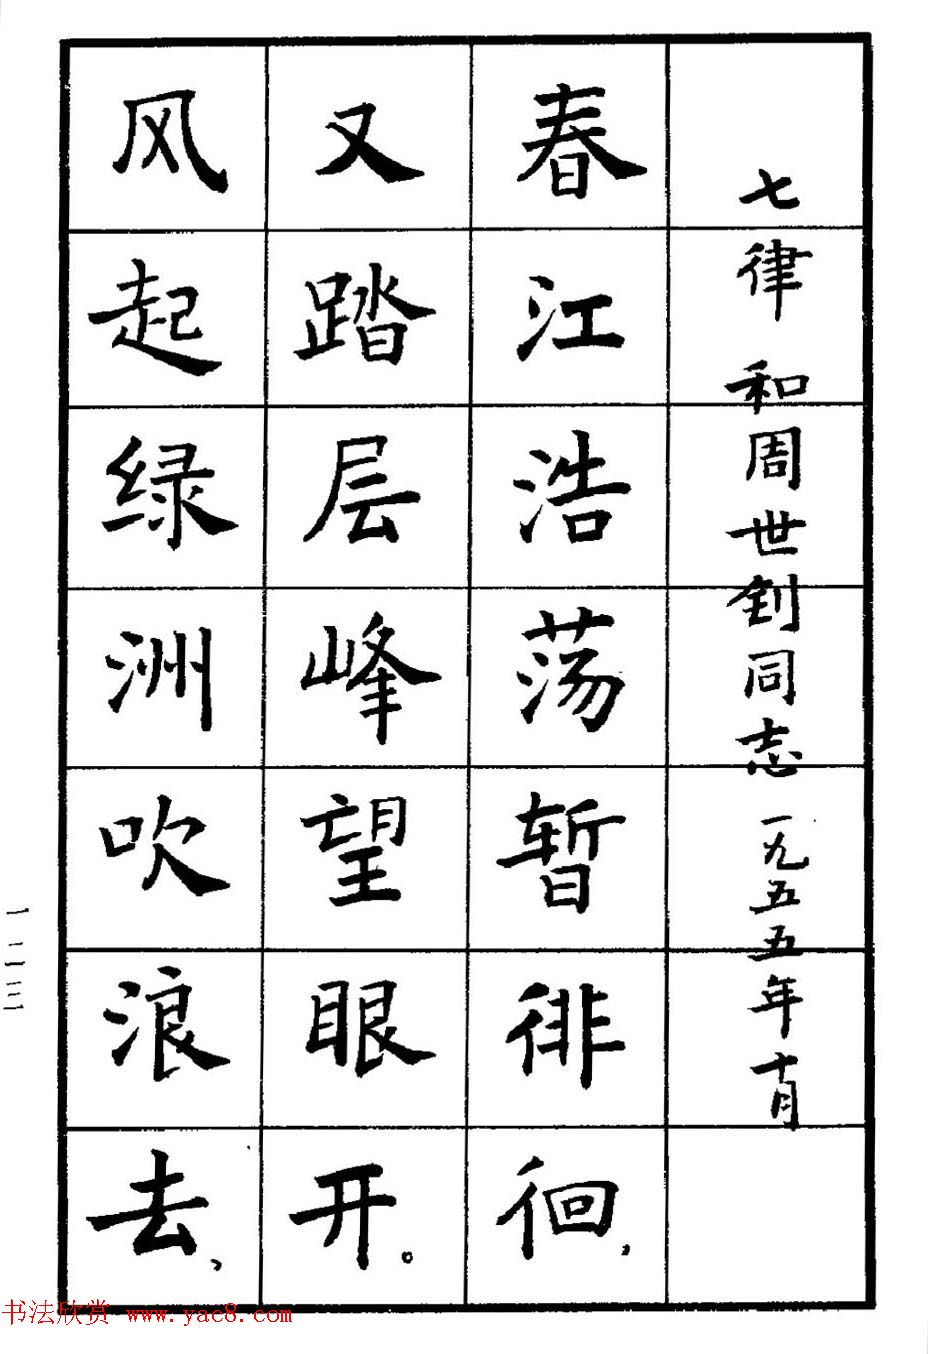 七律 和周世钊同志 一九五五年十月
春江浩荡暂徘徊，
又踏层峰望眼开。
风起绿洲吹浪去，
一二三
书法欣赏 www.yac8.com